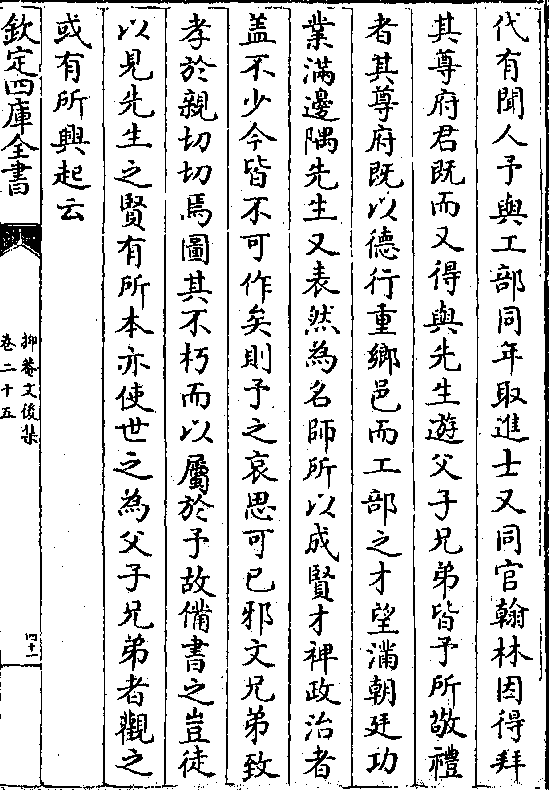 代有聞人予與工部同年取進士又同官翰林因得拜
其尊府君既而又得與先生遊父子兄弟皆予所敬禮
者其尊府既以德行重鄉邑而工部之才望滿朝廷功
業滿邊隅先生又表然為名師所以成賢才裨政治者
盖不少今皆不可作矣則予之哀思可已邪文兄弟致
孝於親切切焉圖其不朽而以屬於予故備書之豈徒
以見先生之賢有所本亦使世之為父子兄弟者觀之
或有所興起云
欽定四庫全書
抑菴文後集
卷二十五
四十一